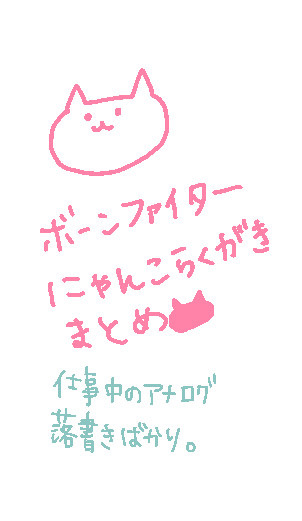 ボーンファイター
にゃんこらくがき
まとめ
仕事中のアナログ
落書きばかり。